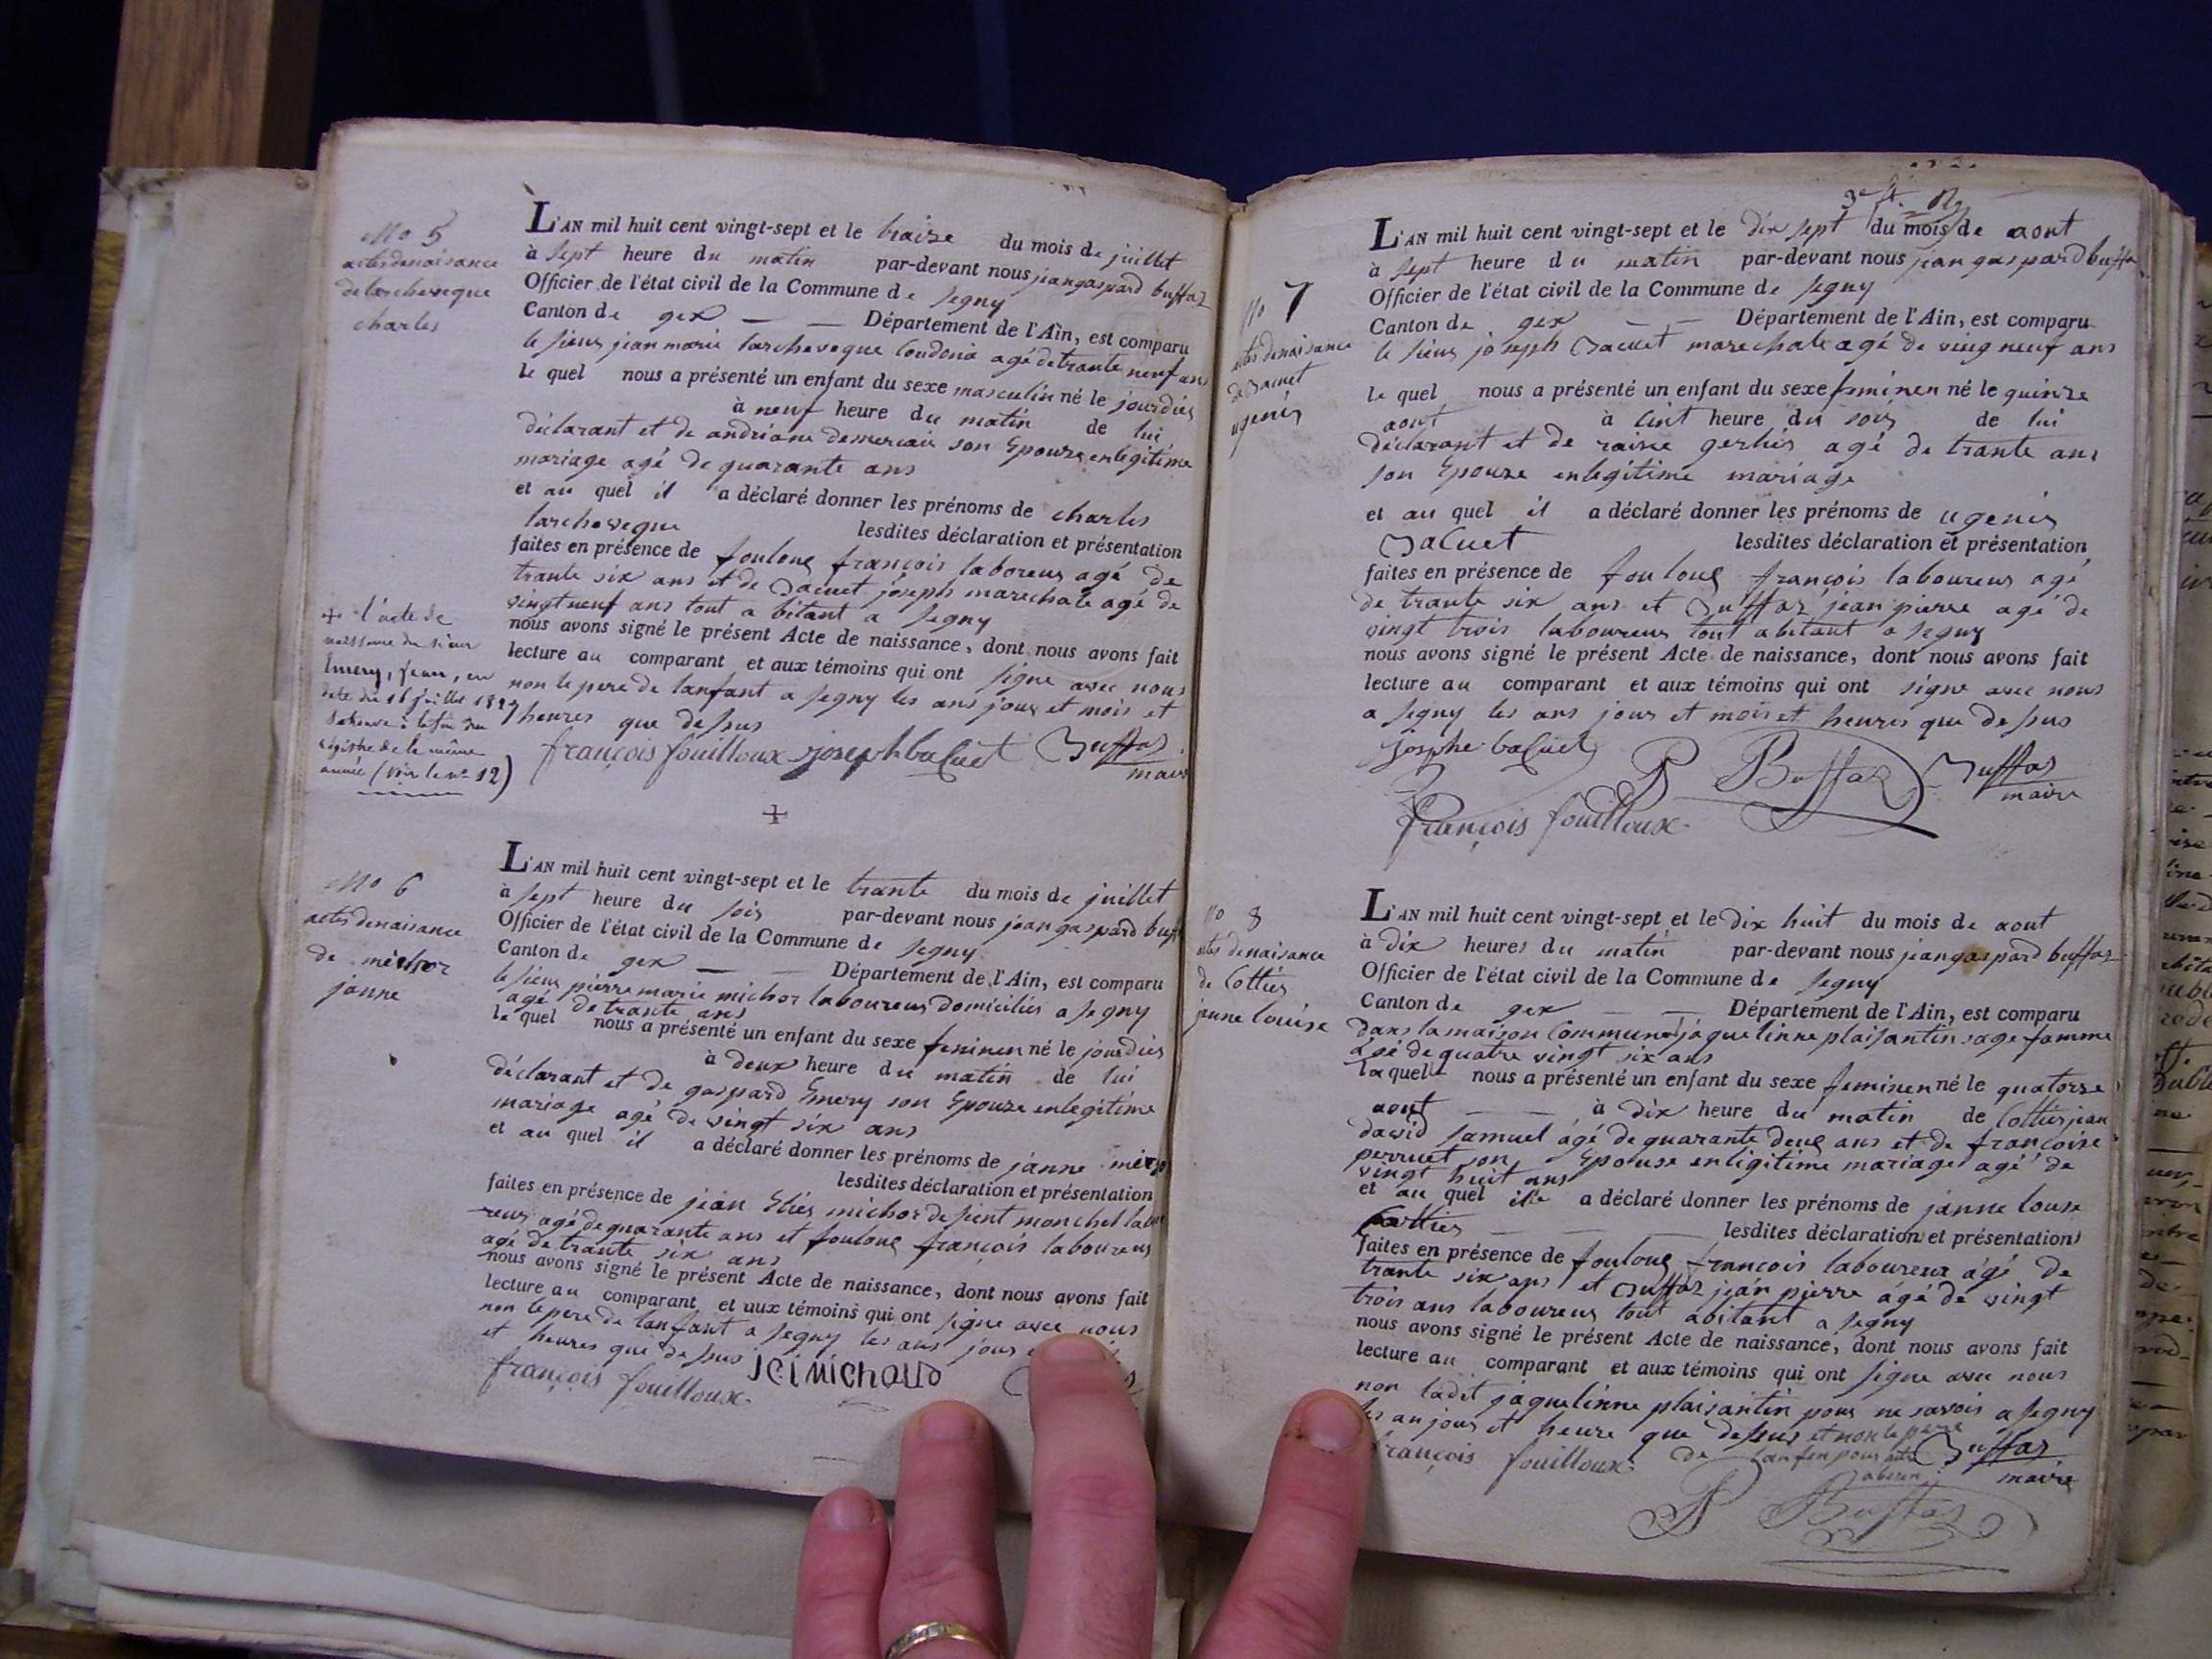 No 5
actes de naisance
de larcheveque
charles
L'AN mil huit cent vingt-sept et le traize du mois de juillet
à sept heure du matin par-devant nous jean gaspard buffaz
Officier de l'état civil de la Commune de segny
Canton de gex Département de l'Ain, est comparu
le sieur jean marie larcheveque agé de trante neuf ans
le quel nous a présenté un enfant du sexe masculin né le jourdies
à neuf heure du matin de lui
déclarant et de andriane son Epouze en legitime
mariage agé de quarante ans
et au quel il a déclaré donner les prénoms de charles
larcheveque lesdites déclaration et présentation
faites en présence de foulouz françois laboreur agé de
trante six ans et de Bacuet joseph marechale agé de
vingt neuf ans tout a bitant a segny
nous avons signé le présent Acte de naissance, dont nous avons fait
lecture au comparant et aux témoins qui ont signe avec nous
non le pere de lanfant a segny les ans jour et mois et
heures que dessus
françois fouilloux joseph baCuet Buffaz
maire
+ l'acte de
naissance du sieur
Emery, jean, en
date du 16 juillet 1827
se trouve à la fin du
registre de la même
année (voir le no 12)
+
No 6
actes de naisance
de michoz
janne
L'AN mil huit cent vingt-sept et le trante du mois de juillet
à sept heure du soir par-devant nous jean gaspard buffaz
Officier de l'état civil de la Commune de segny
Canton de gex Département de l'Ain, est comparu
le sieur pierre marie michoz laboureur domicilier a segny
agé de trante ans
le quel nous a présenté un enfant du sexe feminen né le jourdies
à deux heure du matin de lui
déclarant et de gaspard Emery son Epouze en legitime
mariage agé de vingt six ans
et au quel il a déclaré donner les prénoms de janne
lesdites déclaration et présentation
faites en présence de jean Elies michoz de labou
reur agé de quarante ans et foulouz françois laboureur
agé de trante six ans
nous avons signé le présent Acte de naissance, dont nous avons fait
lecture au comparant et aux témoins qui ont signe avec nous
non le pere de lanfant a segny les ans jour
et heures que dessus
françois fouilloux JEiMiCHAUD
No 7
actes de naisance
de Bacuet
ugenis
L'AN mil huit cent vingt-sept et le dix sept du mois de aout
à sept heure du matin par-devant nous jean gaspard buffaz
Officier de l'état civil de la Commune de segny
Canton de gex Département de l'Ain, est comparu
le sieur joseph Bacuet marechale agé de veing neuf ans
le quel nous a présenté un enfant du sexe feminen né le quinze
aout à cint heure du soir de lui
déclarant et de raisie gerbis agé de trante ans
son Epouze en legitime mariage
et au quel il a déclaré donner les prénoms de ugenis
Bacuet lesdites déclaration et présentation
faites en présence de foulouz françois laboureur agé
de trante six ans et Buffaz jean pierre agé de
vingt trois laboureur tout abitant a segny
nous avons signé le présent Acte de naissance, dont nous avons fait
lecture au comparant et aux témoins qui ont signe avec nous
a segny les ans jour et mois et heures que dessus
josephe baCuet P Buffaz Buffaz
maire
françois fouilloux
no 8
actes de naisance
de Cottier
janne louise
L'AN mil huit cent vingt-sept et le dix huit du mois de aout
à dix heures du matin par-devant nous jean gaspard buffaz
Officier de l'état civil de la Commune de segny
Canton de gex Département de l'Ain, est comparu
dans la maison Commune jaquelinne plaisantin sage famme
agé de quatre vingt six ans
la quel nous a présenté un enfant du sexe feminen né le quatorze
aout à dix heure du matin de Cottier jean
david samuel agé de quarante deux ans et de françoise
perruet son Epouse en ligitime mariage agé de
vingt huit ans
et au quel a déclaré donner les prénoms de janne louse
Cottier lesdites déclaration et présentation
faites en présence de foulouz françois laboureur agé de
trante six ans et Buffaz jean pierre agé de vingt
trois ans laboureur tout abitant a segny
nous avons signé le présent Acte de naissance, dont nous avons fait
lecture au comparant et aux témoins qui ont signe avec nous
non ladit jaquelinne plaisantin pour ne savoir a segny
les an jour et heure que dessus et non le pere
de lanfen pour etre
absen
françois fouilloux Buffaz
maire
P Buffaz